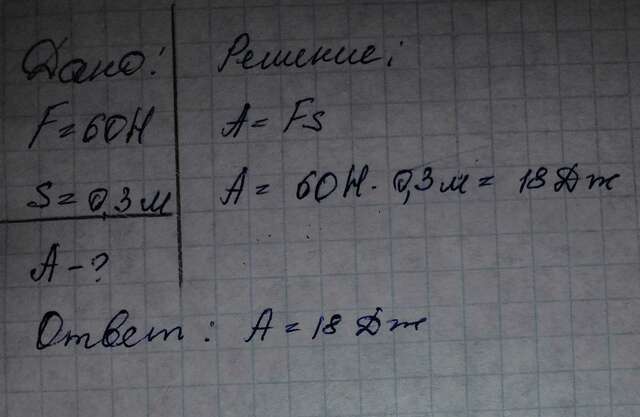 Дано: Решение:
F = 60Н A = Fs
S = 0,3м A = 60Н · 0,3м = 18 Дж
A - ?
Ответ: A = 18 Дж